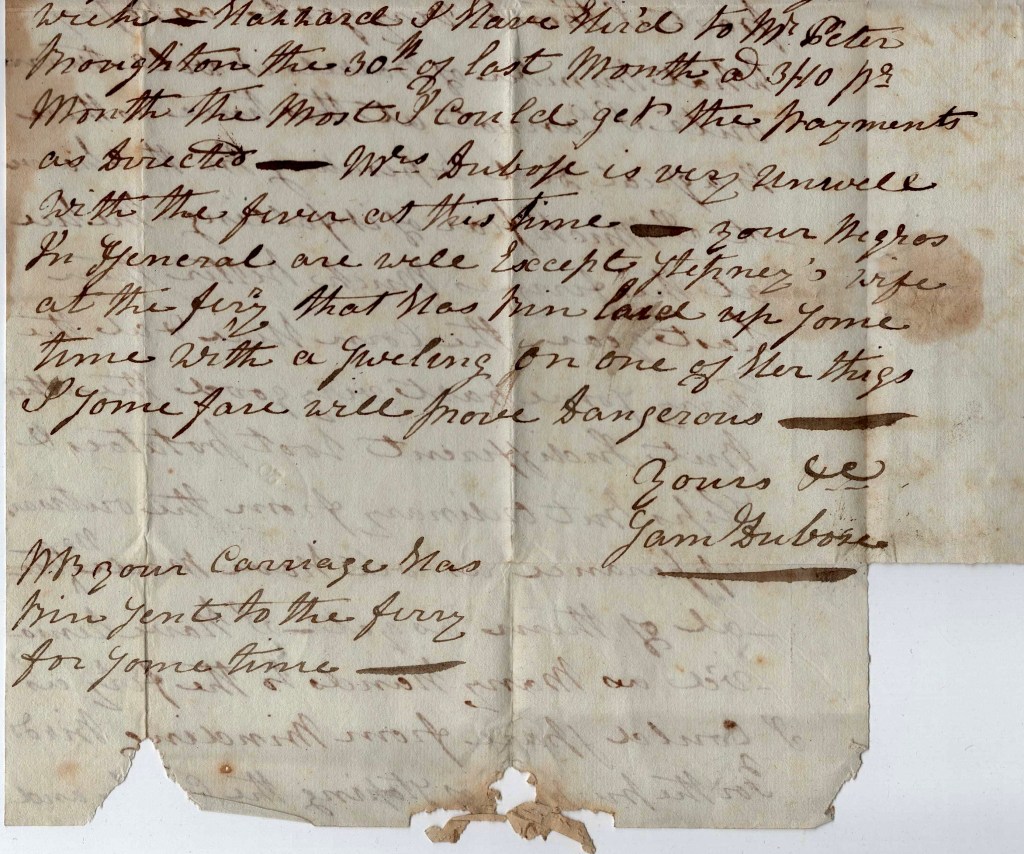 with — Hazzard I Have Hir'd to Mr Peter
Broughton the 30th of last Month @ 3/10 pr
Month the Most I Could get the payments
as Directed — Mrs Dubose is very Unwell
With the fever at this time — your Negros
In General are well Except Stepney's wife
at the ferry that Has Bin laid up Some
time with a Sweling on one of Her thigs
I Some fare will prove Dangerous —
Yours &c
Sam Dubose
NB your Carriage Has
Bin Sent to the ferry
for Some time —